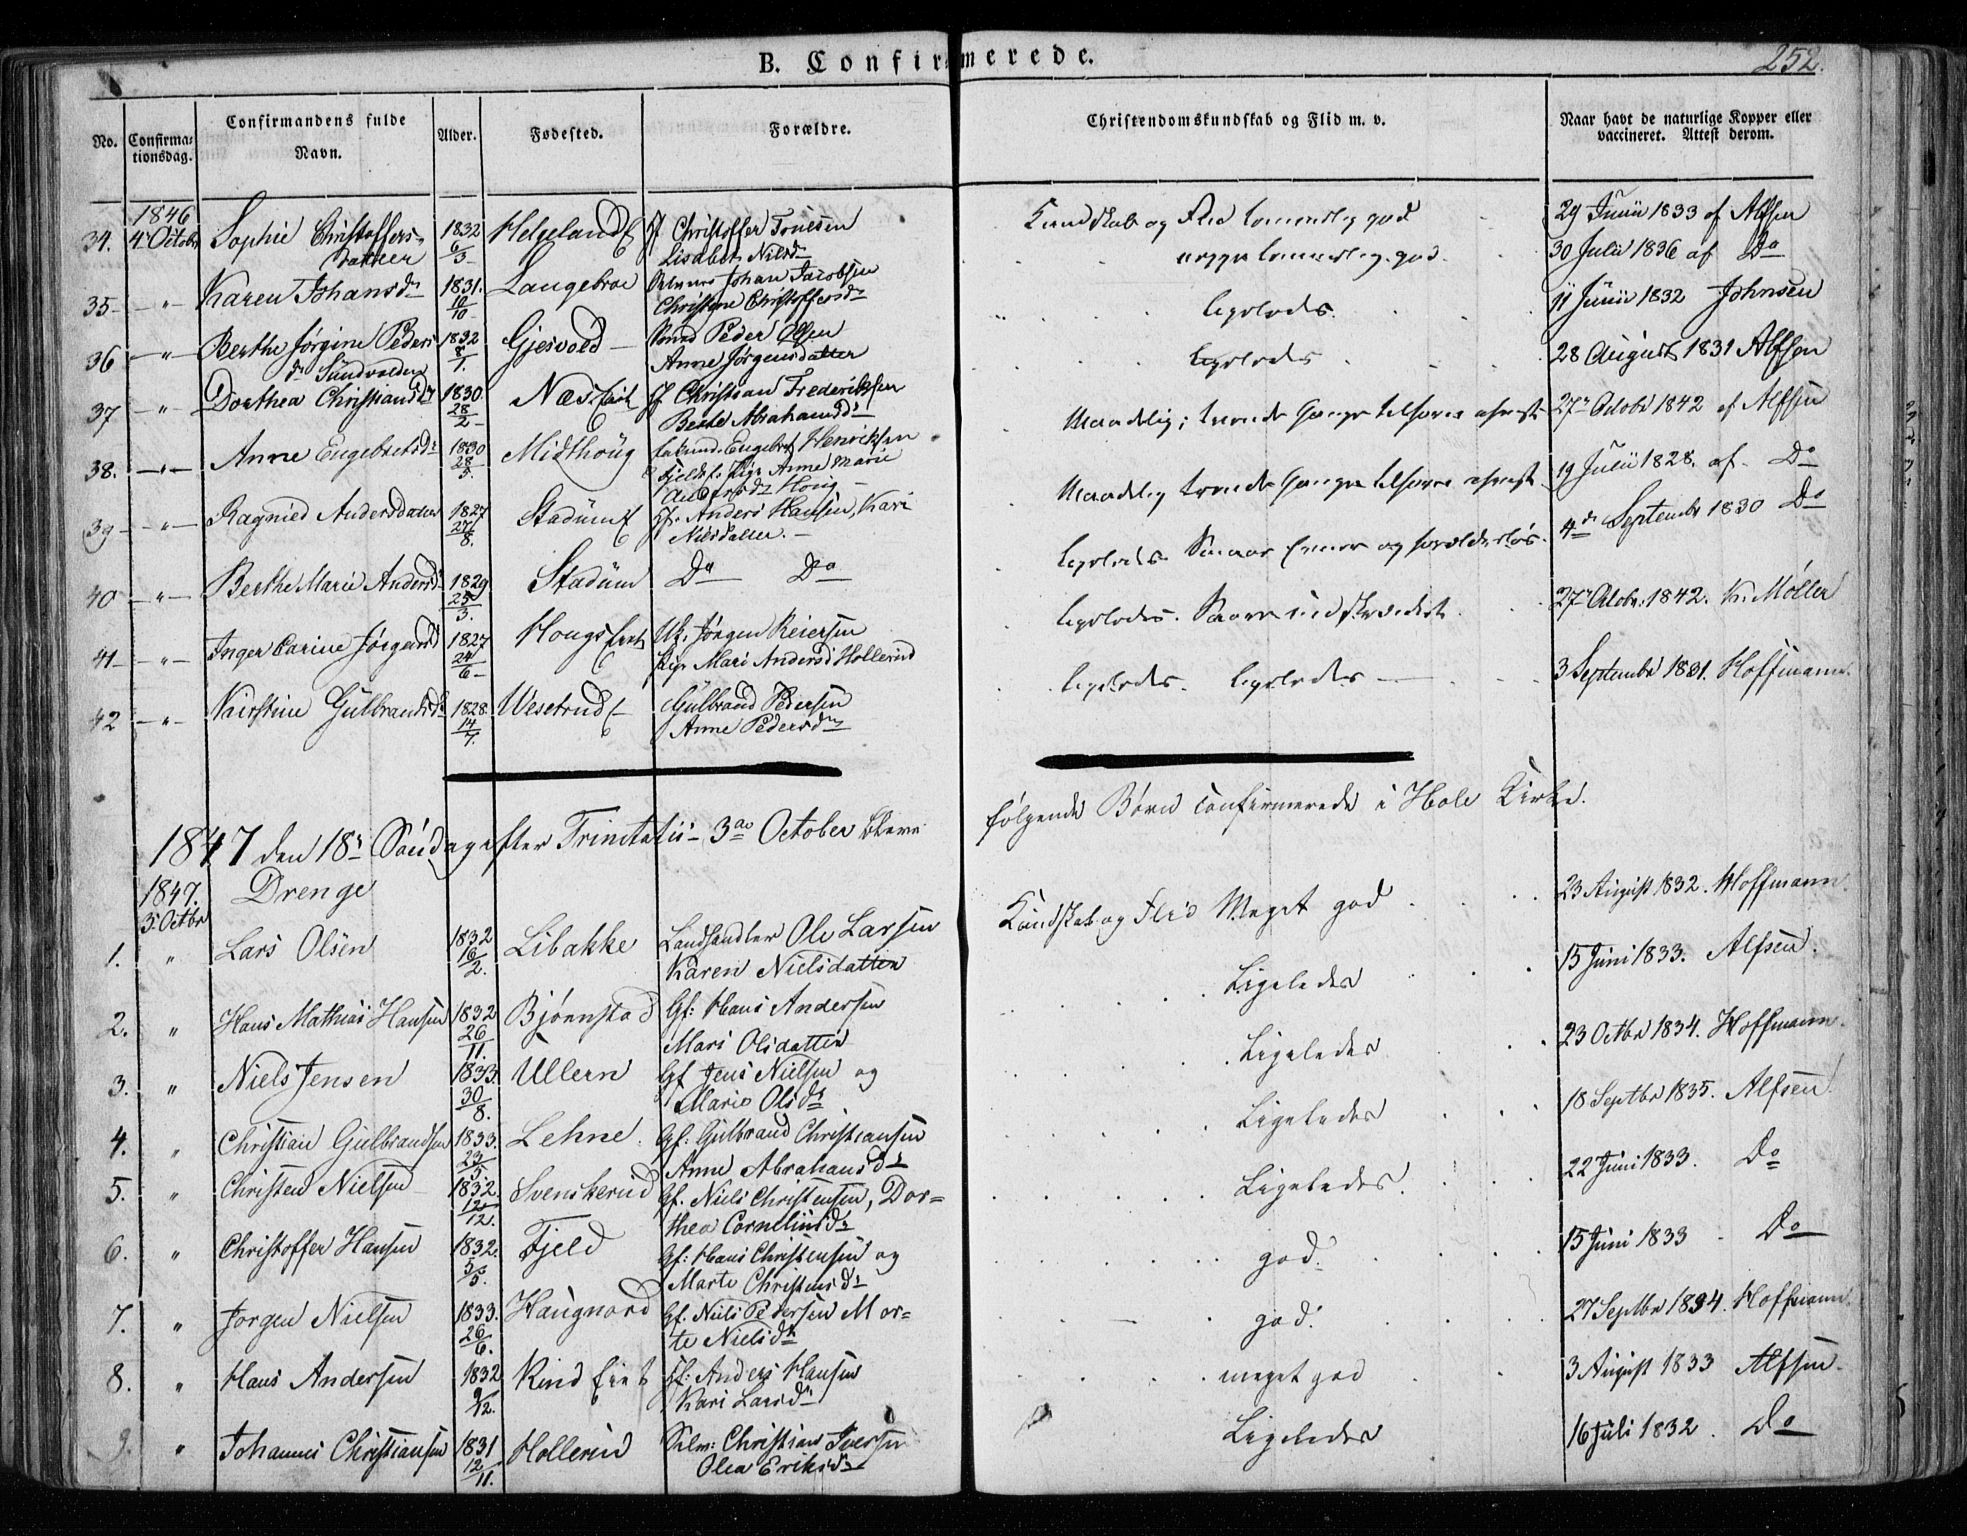 B. Confirmerede.
252.
No.
Confirma-
tionsdag.
Confirmandens fulde
Navn.
Alder.
Fødested.
Forældre.
Christendomskundskab og Flid m. v.
Naar havt de naturlige Kopper eller
vaccineret. Attest derom.
1846
34. 4 Octobr Sophie Christoffers- 1832 Helgeland Christoffer Kundskab og Flid temmelig god 29 Junii 1833 af Alfsen
datter 6/3 Lisabet Nilsd. temmelig god 30 Julii 1836 af Do
35 - " - Karen Johansdr 1831. Langebroe Johan Jacobsen
10/10 Christine Christoffersdr ligeledes. 11 Junii 1832 Johnsen
36 - " - Berthe Jørgine Peders 1832 Gjesvold - Peder Olsen
dr Sundvolden 8/1. Anne Jørgensdatter ligeledes 28 August 1831 Alfsen
37 - " - Dorthea Christiansdr 1830. Næs Christian Frederiksen
28/2 Berte Abrahamsdr Maadelig; 27 Octobr 1842 af Alfsen
38. - " - Anne Engebretsdr 1830 Midthoug Engebret Henriksen
28/5. Pige Anne Marie
Andersdr Houg - Maadelig 19 Julii 1828. af Do
39 - " - Ragnied Andersdatter 1827 Stadum Anders Hansen, Kari
27/8. Nilsdatter. - ligeledes og forælderløs. 4de Septembr 1830 Do
40 - " - Berthe Marie Andersd. 1829 Stadum Do Do
25/3. ligeledes. 27 Octobr. 1842. K. Møller
41 - " - Inger Carine Jørgensd 1827 Hougs Jørgen Reiersen
24/6 - Pige Mari Andersd Hollerud ligeledes. ligeledes 3 Septembr 1831. Hoffmann.
42 - " - Kirstine Gulbrandsdr 1828. Wesetrud Gulbrand Pedersen
14/7. Anne Pedersdr
1847 den 18de Søndag efter Trinitatis - 3die October bleve følgende Børn confirmerede i Hole Kirke.
1847. Drenge
3 Octbr
1. " Lars Olsen 1832 Libakke Landhandler Ole Larsen Kundskab og Flid Meget god 23 August 1832. Hoffmann.
16/2. Karen Nielsdatter
2. " Hans Mathias Hansen 1832 Bjørnstad Gf: Hans Andersen Ligeledes 15 Juni 1833. Alfsen.
26/11. Mari Olsdatter
3. " Niels Jensen 1833. Ullern Gf Jens Nielsen og Ligeledes 23 Octbr 1834. Hoffmann.
30/8. Marie Olsdr
4. " Christian Gulbrandsen 1833. Lehne. Gf: Gulbrand Christiansen Ligeledes 18 Septbr 1835. Alfsen.
23/5. Anne Abrahamsdr
5. " Christen Nielsen 1832. Svenskerud Gf. Niels Christensen, Dor= Ligeledes. 22 Juni 1833. Do
12/12. thea Corneliusdr
6. " Christoffer Hansen 1832. Fjeld Gf: Hans Christensen og god. 15 Juni 1833 - Do
5/5. Marte Christensdr
7. " Jørgen Nielsen 1833. Haugnord Gf. Niels Pedersen Mar= god. 27 Septbr 1834. Hoffmann.
26/6. te Nielsdr
8. " Hans Andersen 1832 Rud Anders Hansen meget god 3 August 1833 Alfsen.
9/12. Kari Larsdr
9. " Johannes Christiansen 1831 Hollerud Christian Iversen Ligeledes 16 Juli 1832. Do
12/11. Olea Eriksdr